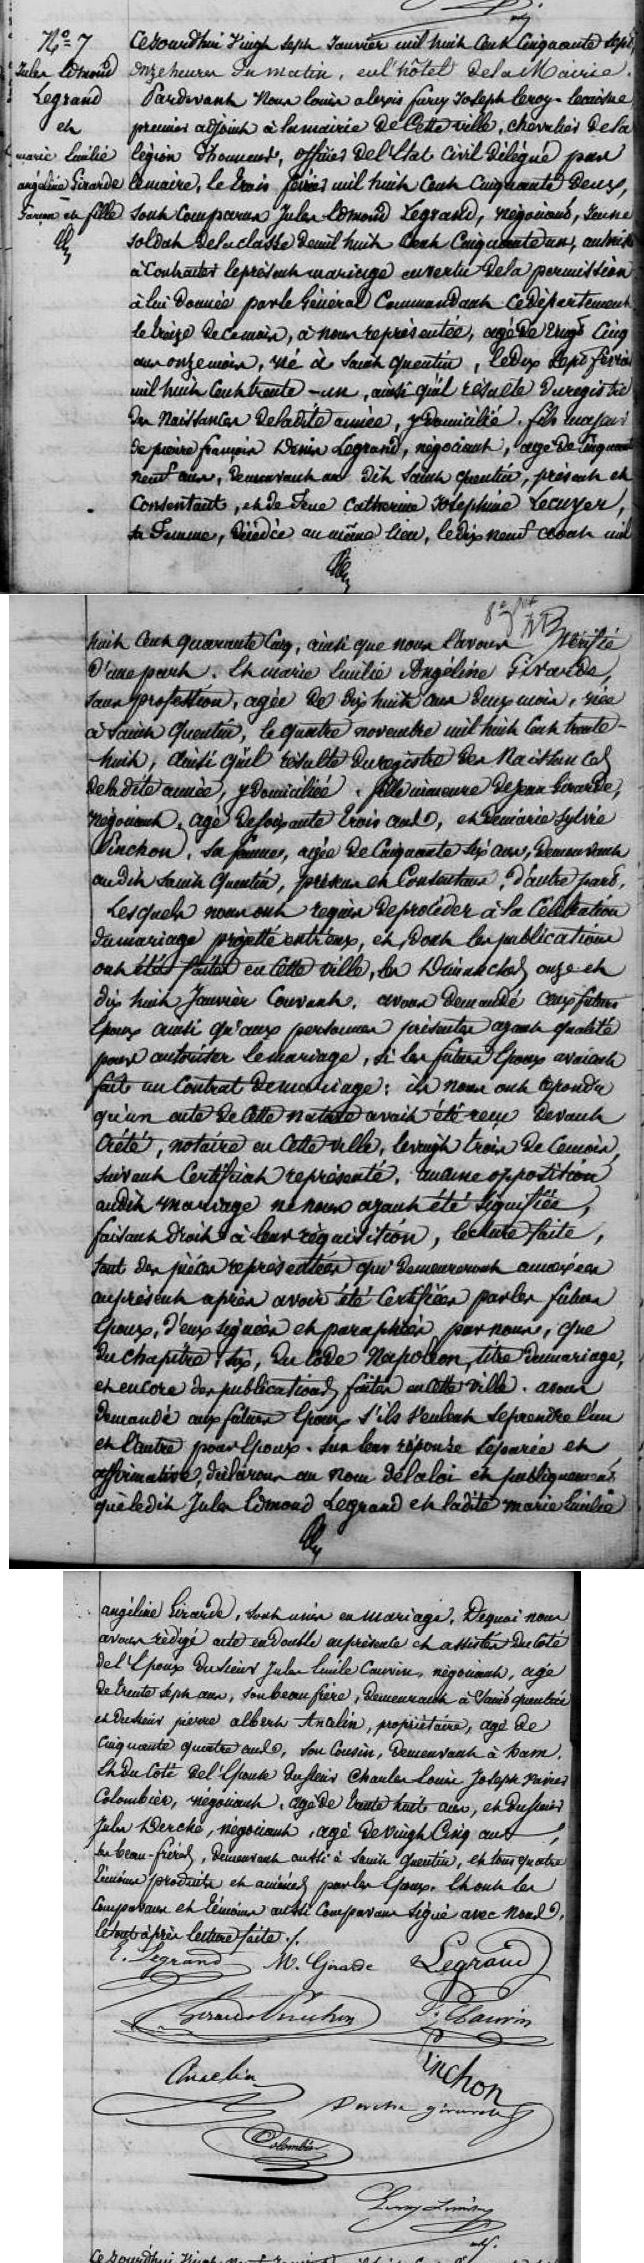 N° 7
Jules Edmond
Legrand
et
marie Emilie
angéline Girarde
Garçon et fille
Cejourdhui Vingt Sept Janvier mil huit Cent Cinquante Sept,
onze heures du matin, en l'hôtel de la Mairie.
Pardevant Nous louis alexis furcy Joseph leroy-lemoine
premier adjoint à la mairie de Cette ville, chevalier de la
légion d'honneur, officier de l'Etat Civil délégué par
le maire, le trois février mil huit Cent Cinquante deux,
sont Comparus Jules Edmond Legrand, négociant, Jeune
soldat de la classe de mil huit Cent Cinquante un, autorisé
à Contracter le présent mariage en vertu de la permission
à lui donnée par le Général Commandant ce département
le treize de ce mois, à nous représentée, agé de Vingt Cinq
ans onze mois, né à Saint quentin, le dix sept février
mil huit Cent trente-un, ainsi qu'il résulte du registre
des Naissances de ladite année, y domicilié. fils majeur
de pierre françois Denis Legrand, négociant, agé de Cinquante
neuf ans, demeurant au dit Saint quentin, présent et
Consentant, et de feue Catherine Joséphine Lecuyer,
sa femme, décédée au même lieu, le dix neuf août mil
huit Cent quarante Cinq, ainsi que nous l'avons Vérifié
D'une part. Et marie Emilie Angéline Girarde,
sans profession, agée de dix huit ans deux mois, née
à Saint Quentin, le quatre novembre mil huit Cent trente-
huit, ainsi qu'il résulte du registre des Naissances
de ladite année, y domiciliée. fille mineure de Jean Girarde,
négociant, agé de soixante trois ans, et de marie Sylvie
Pinchon, sa femme, agée de Cinquante Six ans, demeurant
au dit Saint Quentin, présens et Consentans, d'autre part.
Lesquels nous ont requis de procéder à la Célébration
du mariage projetté entr'eux, et dont les publications
ont été faites en Cette ville, les Dimanches onze et
dix huit Janvier Courant. avons demandé aux futurs
Epoux ainsi qu'aux personnes présentes ayant qualité
pour autoriser le mariage, si les futurs Epoux avaient
fait un Contrat de mariage: ils nous ont répondu
qu'un acte de Cette nature avait été reçu devant
Crété, notaire en Cette ville, le vingt trois de Ce mois,
suivant Certificat représenté. aucune opposition
audit mariage ne nous ayant été signifiée,
faisant droit à leur réquisition, lecture faite,
tant des pièces représentées qui demeureront annexées
au présent après avoir été Certifiées par les futurs
Epoux, d'eux signées et paraphées par nous, que
du chapitre six, du Code Napoléon, titre du mariage,
et encore des publications faites en cette ville. avons
demandé aux futurs Epoux s'ils veulent se prendre l'un
et l'autre pour Epoux. Sur leur réponse séparée et
affirmative, déclarons au nom de la loi et publiquement
que ledit Jules Edmond Legrand et ladite marie Emilie
angéline Girarde, sont unis en mariage. De quoi nous
avons rédigé acte en double en présence et assistés du Coté
de l'Epoux du sieur Jules Emile Cauvin, négociant, agé
de trente sept ans, son beau frère, demeurant à Saint quentin
et du sieur pierre albert Ancelin, propriétaire, agé de
Cinquante quatre ans, son Cousin, demeurant à ham.
Et du Coté de l'Epouse du sieur Charles Louis Joseph
Colombier, négociant, agé de trente huit ans, et du sieur
Jules Derche, négociant, agé de vingt Cinq ans,
ses beau-frères, demeurant aussi à Saint quentin, et tous quatre
témoins produits et amenés par les Epoux. Et ont les
Comparans et témoins aussi Comparans Signé avec Nous,
le tout après lecture faite ./.
E. Legrand M. Girarde Legrand
Girarde Pinchon Cauvin
Ancelin Pinchon
Derche girarde
Colombier
Leroy Lemoine